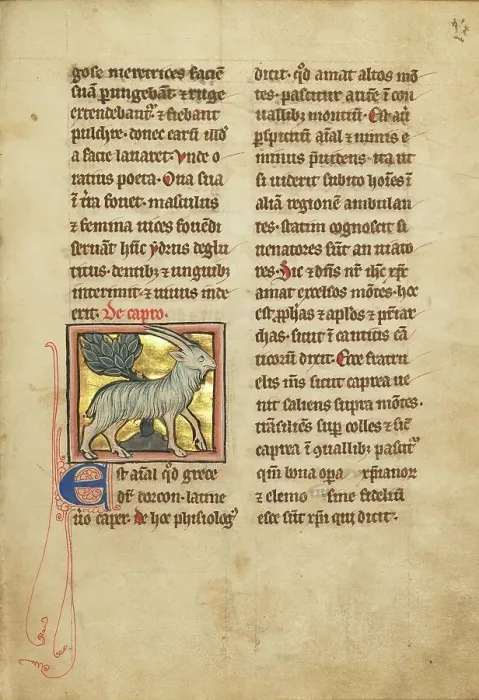 gose meretrices faciē
suā pungebāt ⁊ ruge
extendebant᷑ ⁊ fiebant
pulchre · donec earū
a facie lauaret · Vnde o
ratius poeta · Oua sua
ī fouet · masculus
⁊ femina uices fouēdi
seruāt hīc ydrus deglu
titus · dentibꝫ ⁊ unguibꝫ
interimit · ⁊ uiuus inde
erit · De capro ·
Est aīal qd̄ grece
dr̄ dorcon · latine
uō caper · de hoc phisiologꝰ
dicit · qd̄ amat altos mō
tes · pascitur autē ī con
uallibꝫ montiū · Est aū
pspicuū aīal ⁊ nimis e
minus prudens · ita ut
si uiderit subito hoīes ī
aliā regionē ambulan
tes · statim cognoscit si
uenatores sūt an uiato
res · Sic ⁊ dn̄s nr̄ ihc xpc
amat excelsos mōtes · hoc
est ꝓphās ⁊ aplos ⁊ pr̄iar
chas · sicut ī canticis cā
ticorū dicit · Ecce fratru
elis m̄s sicut caprea ue
nit saliens supra mōtes ·
trāsiliēs sup colles ⁊ sic
caprea ī ꝯuallibꝫ pascit᷑
qm̄ bona opa xpianor
⁊ elemo sine fidelium
esce sūt xpi qui dicit ·